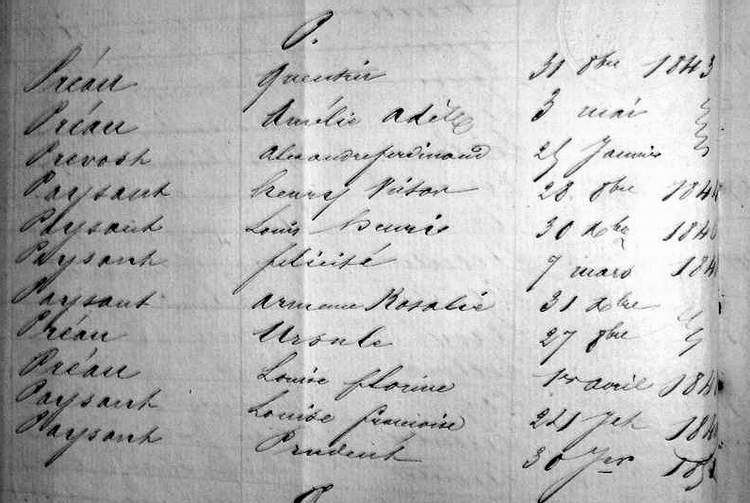 P.
Préau Quentin 31 8bre 1843
Préau Amélie Adèle 3 mai
Prevost Alexandre ferdinand 25 Janvier
Paysant henry Victor 28 8bre 184
Paysant Louis henri 30 Xbre 184
Paysant félicité 7 mars 184
Paysant Rosalie 31 Xbre
Préau Ursule 27 8bre
Préau Louise florine 1er avril 184
Paysant Louise francoise 184
Paysant Prudent 30